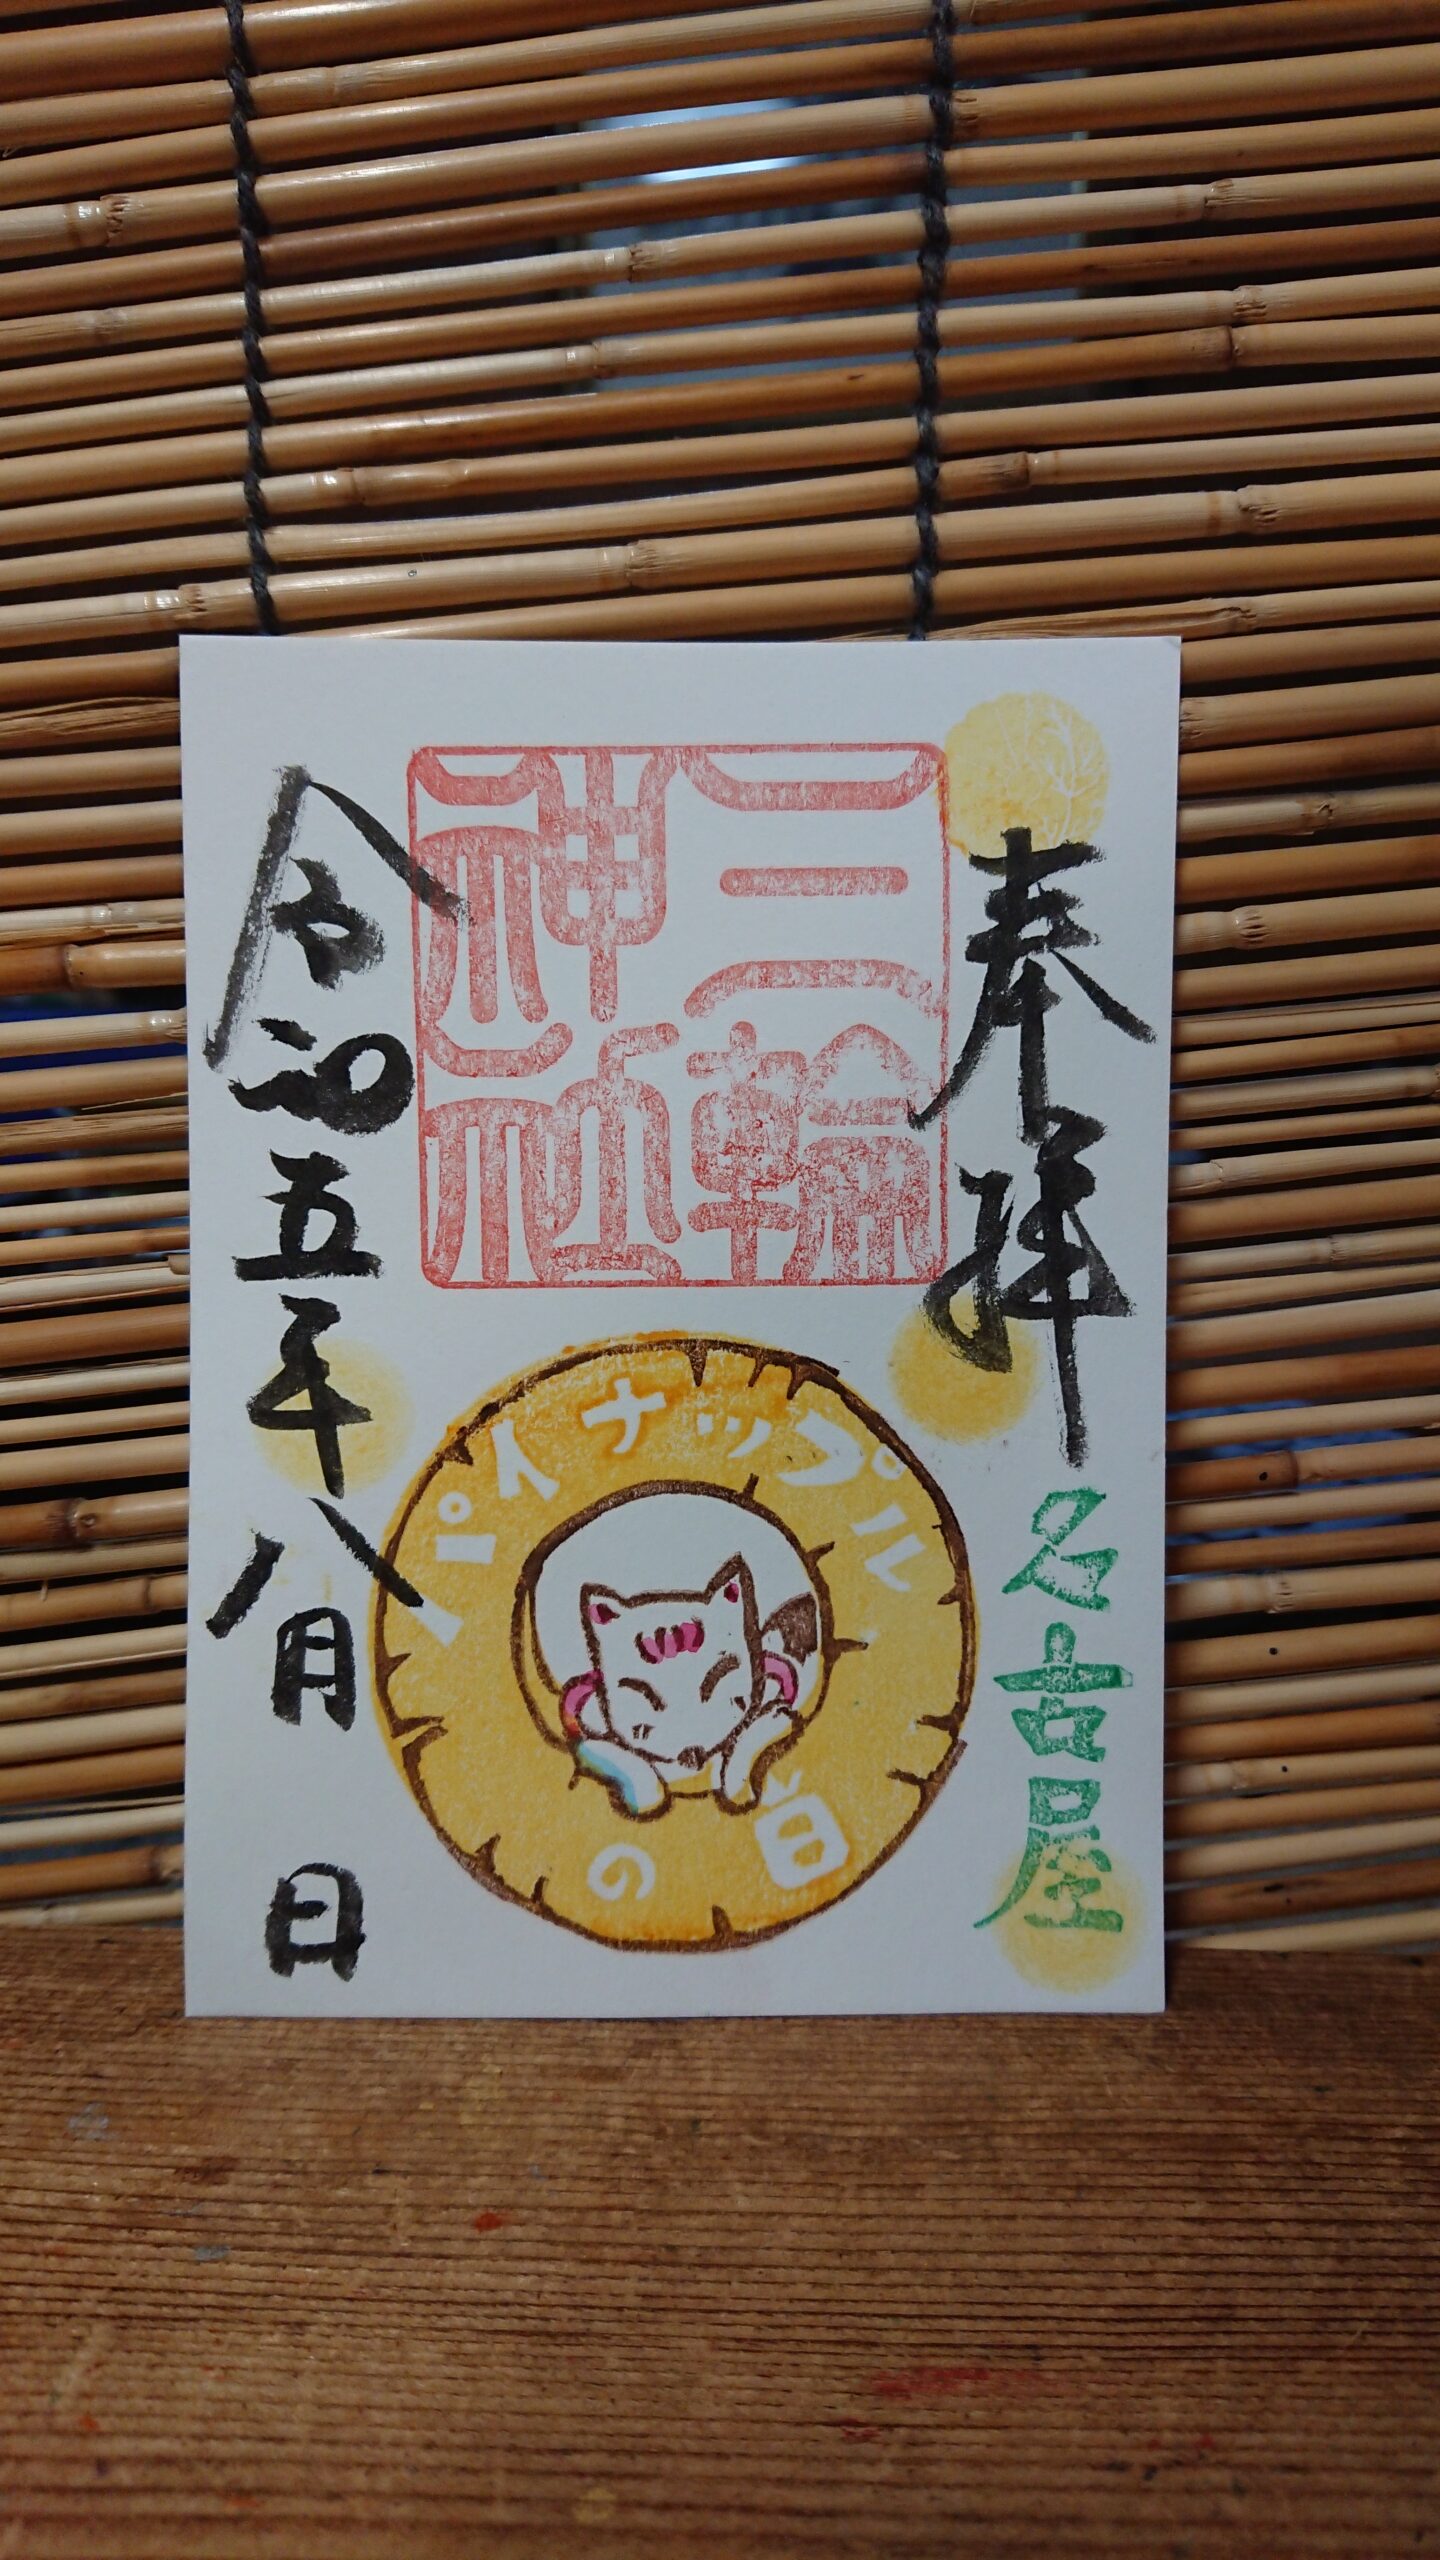 奉拝
名古屋
三輪
神社
パイナップル
の日
令和五年八月 日